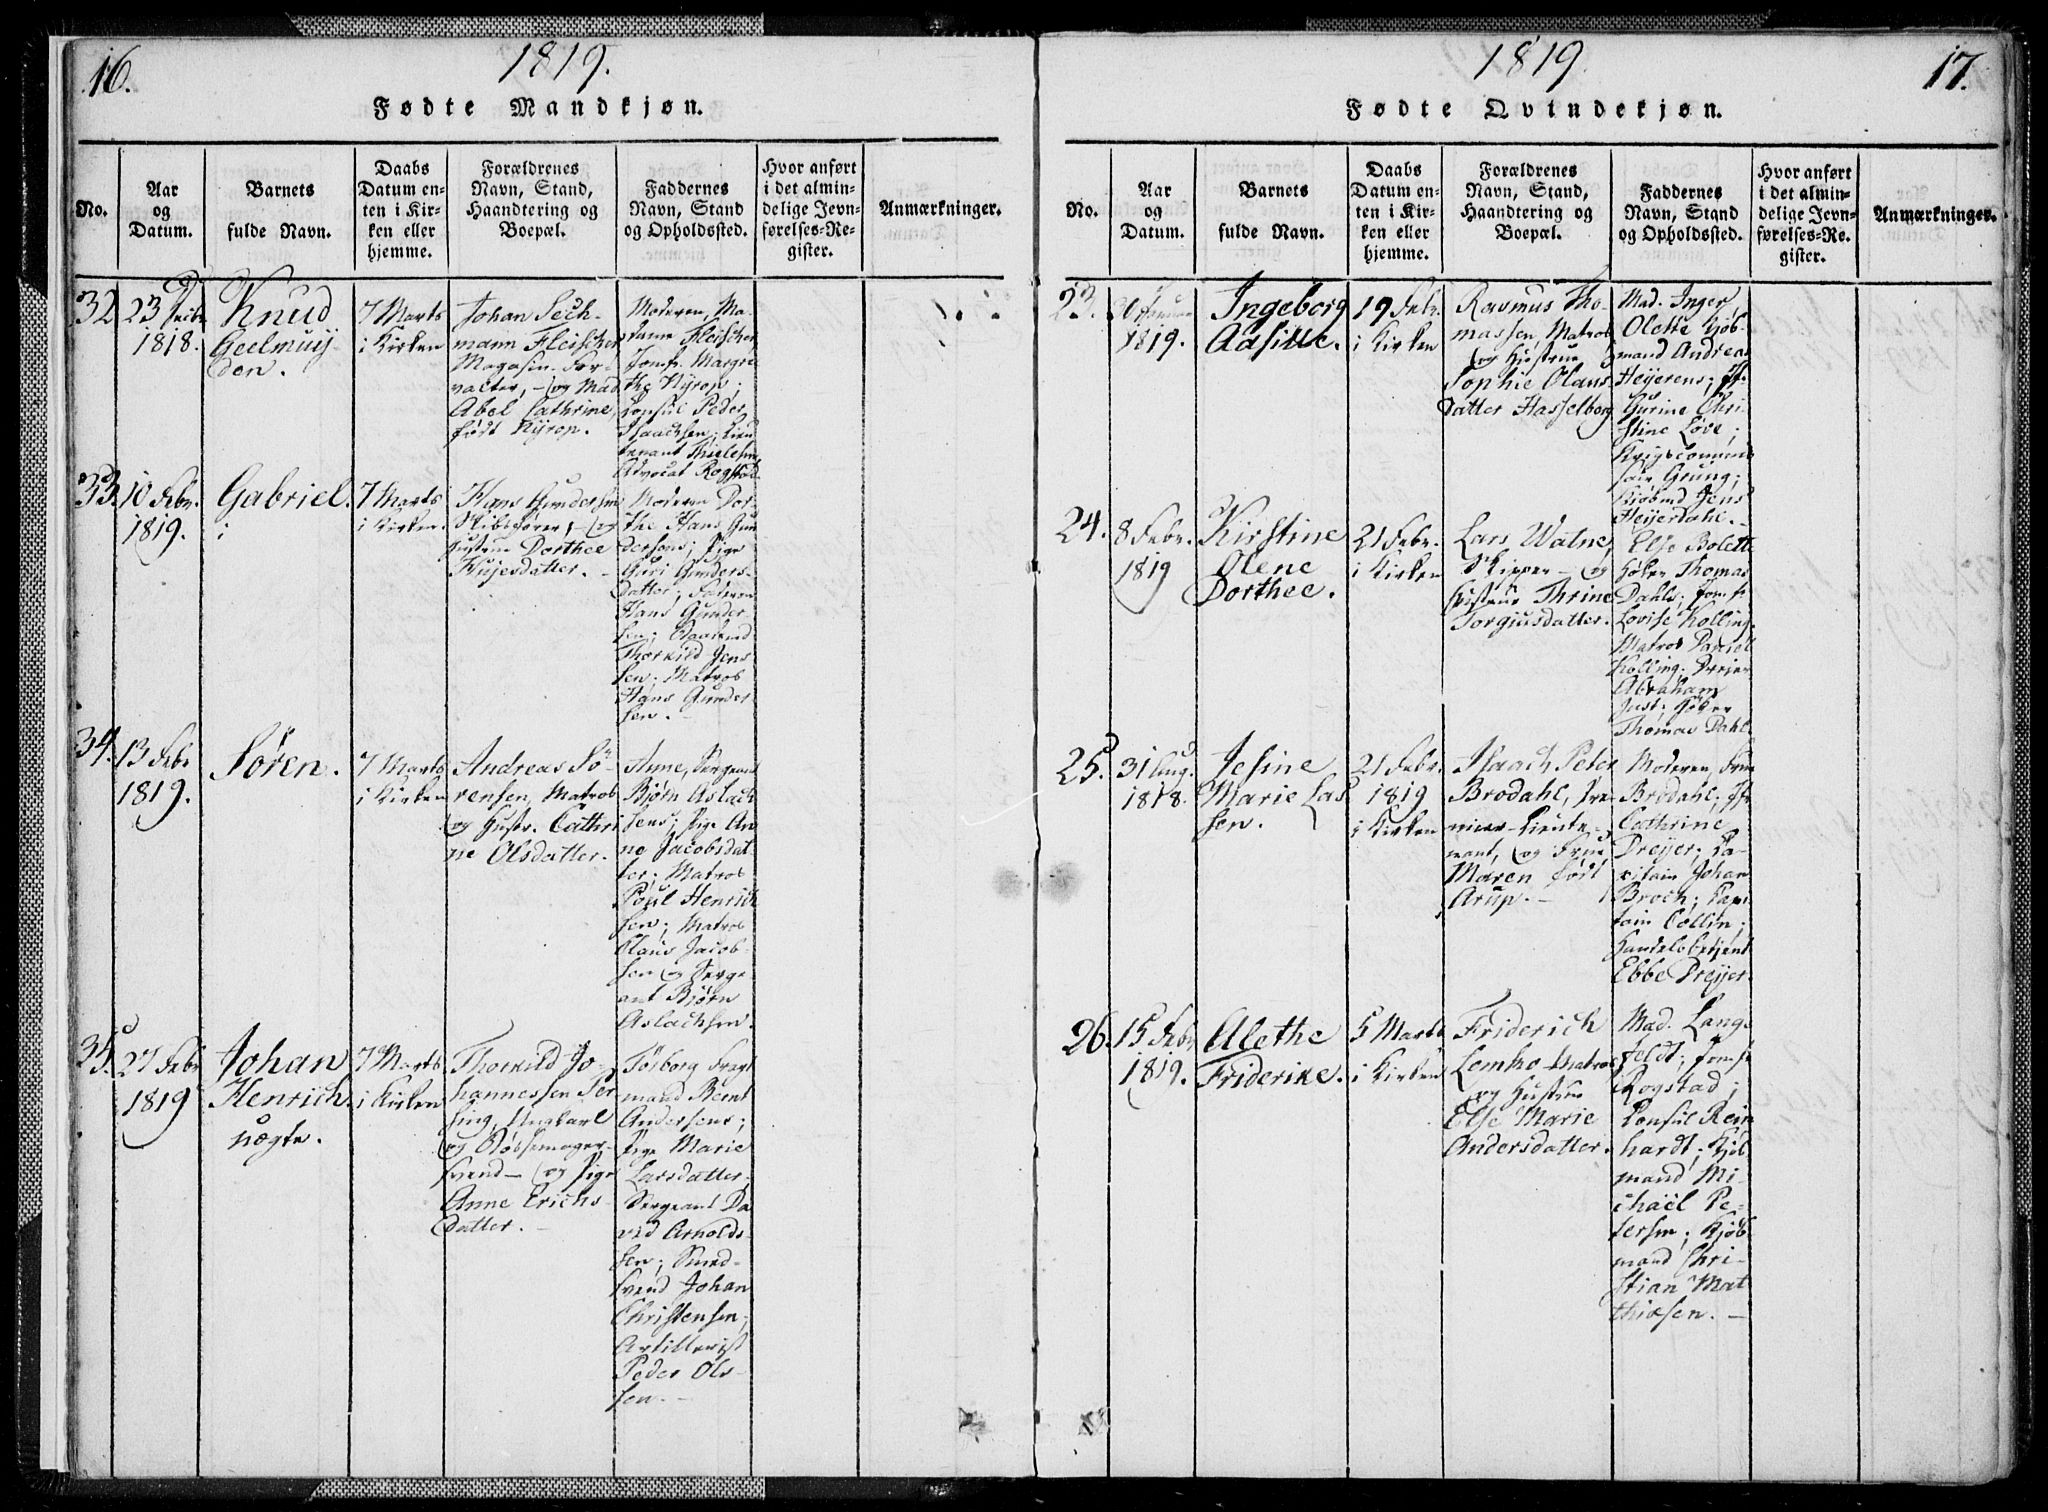 16.
1819.
Fødte Mandkjøn.
No.
Aar
og
Datum.
Barnets
fulde Navn.
Daabs
Datum en-
ten i Kir-
ken eller
hjemme.
Forældrenes
Navn, Stand,
Haandtering og
Boepæl.
Faddernes
Navn, Stand
og Opholdssted.
Hvor anført
i det almin-
delige Jevn-
førelses-Re-
gister.
Anmærkninger.
32
23
1818.
Knud
Geelmuij-
den.
7 Marts
i Kirken
Johan Sech-
mann Fleischer
Magasin For-
valter, - og Mad.
Abel Cathrine,
født Nyrop.
Moderen, Ma-
dame Fleischer
Jomfr. Margre
the Nyrop;
Consul Peder
Isaachsen; Lieu
tenant Thielesen
Advocat Rogstad
33.
10 Febr.
1819.
Gabriel.
7 Marts
i Kirken.
Hans Gundersen
Skibsfører, - og
Hustrue Dorthee
Moderen Dor-
the Hans Gun
dersens; Pige
Guri Gunders-
datter; Faderen
Hans Gunder
sen;
Thorkild Jens
sen; Matros
Hans Gunder
sen. -
34.
13 Febr
1819.
Søren.
7 Marts
i Kirken
Andreas Sö-
rensen, Matros
og Hustr. Cathri
ne Olsdatter.
Anne, Sergeant
Bjørn Aslach
sens; Pige An
ne Jacobsdat-
ter; Matros
Poul Henrich
sen; Matros
Claus Jacob-
sen og Serge
ant Bjørn
Aslachsen.
35.
27 Febr
1819
Johan
Henrich.
uægte.
7 Marts
i Kirken
Thorkild Jo-
hannessen Ter
sing, Ungkarl
og
svend - og Pige
Anne Erichs
datter. -
Töborg
mand Bernt
Andersens;
Pige Marie
Larsdatter;
Sergeant Da
vid Arnolds-
sen; Smed-
svend Johan
Christensen;
Artillerist
Peder Ols-
sen. -
1819
17.
Fødte Qvindekjøn.
No.
Aar
og
Datum.
Barnets
fulde Navn.
Daabs
Datum en-
ten i Kir-
ken eller
hjemme.
Forældrenes
Navn, Stand,
Haandtering og
Boepæl.
Faddernes
Navn, Stand
og Opholdssted.
Hvor anført
i det almin-
delige Jevn-
førelses-Re-
gister.
Anmærkninger.
23.
1819.
Ingeborg
19 Febr.
i Kirken
Rasmus Tho-
massen, Matros
og Hustrue
Sophie Olaus-
datter Hasselborg
Mad. Inger
Olette Kjöb-
mand Andreas
Heyerens; Jfr.
Gurine Chri-
stine Löve;
Krigscommis
sair Grüng;
Kjöbmd Jens
Heijerdahl. -
24.
8 Febr.
1819
Kirstine
Olene
Dorthee.
21 Febr.
i Kirken
Lars Walne,
Skipper - og
Hustrue Thrine
Torgiusdatter.
Else Bolette
Höker Thomas
Dahls; Jomfr.
Lovise Kolling.
Matros Daniel
Kolling; Dreier
Abraham
Just; Höker
Thomas Dahl.
25.
31 Aug.
1818.
Jesine
Marie Las
sen.
21 Febr.
1819
i Kirken
Isaach Peter
Brodahl, Pre-
mier-Lieute-
nant, og Frue
Maren født
Arup. -
Moderen, Frue
Brodahl; Jfr.
Cathrine
Dreijer; Ca-
pitain Johan
Broch; Capi
tain Collin;
Handelsbetjent
Ebbe Dreijer.
26.
15 Febr
1819.
Alethe
Friderike.
5 Marts
i Kirken
Friderich
Lemko Matros
og Hustrue
Else Marie
Andersdatter.
Mad. Lang-
feldt; Jomfr
Rogstad;
Consul Rein
hardt; Kjöb
mand Mi-
chaël Pe-
tersen; Kjöb
mand Chri-
stian Mat
thiesen. -